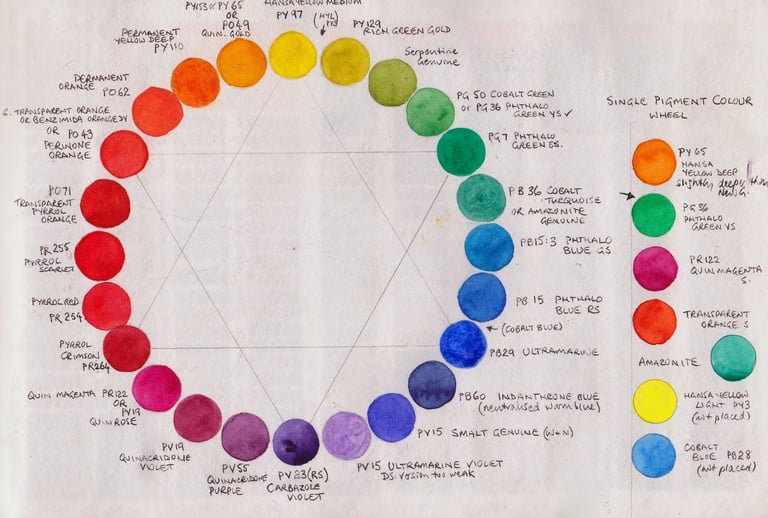 PY153 or PY65
OR
PO49
QUIN. GOLD
HANSA YELLOW MEDIUM
PY97
(HYL)
PY3
PY129
RICH GREEN GOLD
Serpentine
Genuine
PG50 COBALT GREEN
or PG36 PHTHALO
GREEN YS ✓
PG7 PHTHALO
GREEN BS.
PB36 COBALT
TURQUOISE
OR AMAZONITE
GENUINE
PB15:3 PHTHALO
BLUE GS
PB15 PHTHALO
BLUE RS
(COBALT BLUE)
PB29 ULTRAMARINE
PB60 INDANTHRONE BLUE
(neutralised warm blue)
PV15 SMALT GENUINE (W+N)
PV15 ULTRAMARINE VIOLET
DS version too weak
PV23(RS)
CARBAZOLE
VIOLET
PV55
QUINACRIDONE
PURPLE
PV19
QUINACRIDONE
VIOLET
QUIN MAGENTA PR122
OR
PV19
QUIN ROSE
PYRROL
CRIMSON
PR264
PYRROL RED
PR254
PR255
PYRROL
SCARLET
PO71
TRANSPARENT
PYRROL
ORANGE
TRANSPARENT ORANGE
OR BENZIMIDA ORANGE
OR PO43
PERINONE
ORANGE
PERMANENT
ORANGE
PO62
PERMANENT
YELLOW DEEP
PY110
SINGLE PIGMENT COLOUR
WHEEL
PY65
HANSA
YELLOW DEEP
slightly deeper than
New G.
PG36
PHTHALO
GREEN YS
PR122
QUIN MAGENTA
S.
TRANSPARENT
ORANGE S
AMAZONITE
HANSA YELLOW
LIGHT PY3
(not placed)
COBALT
BLUE PB28
(not placed)